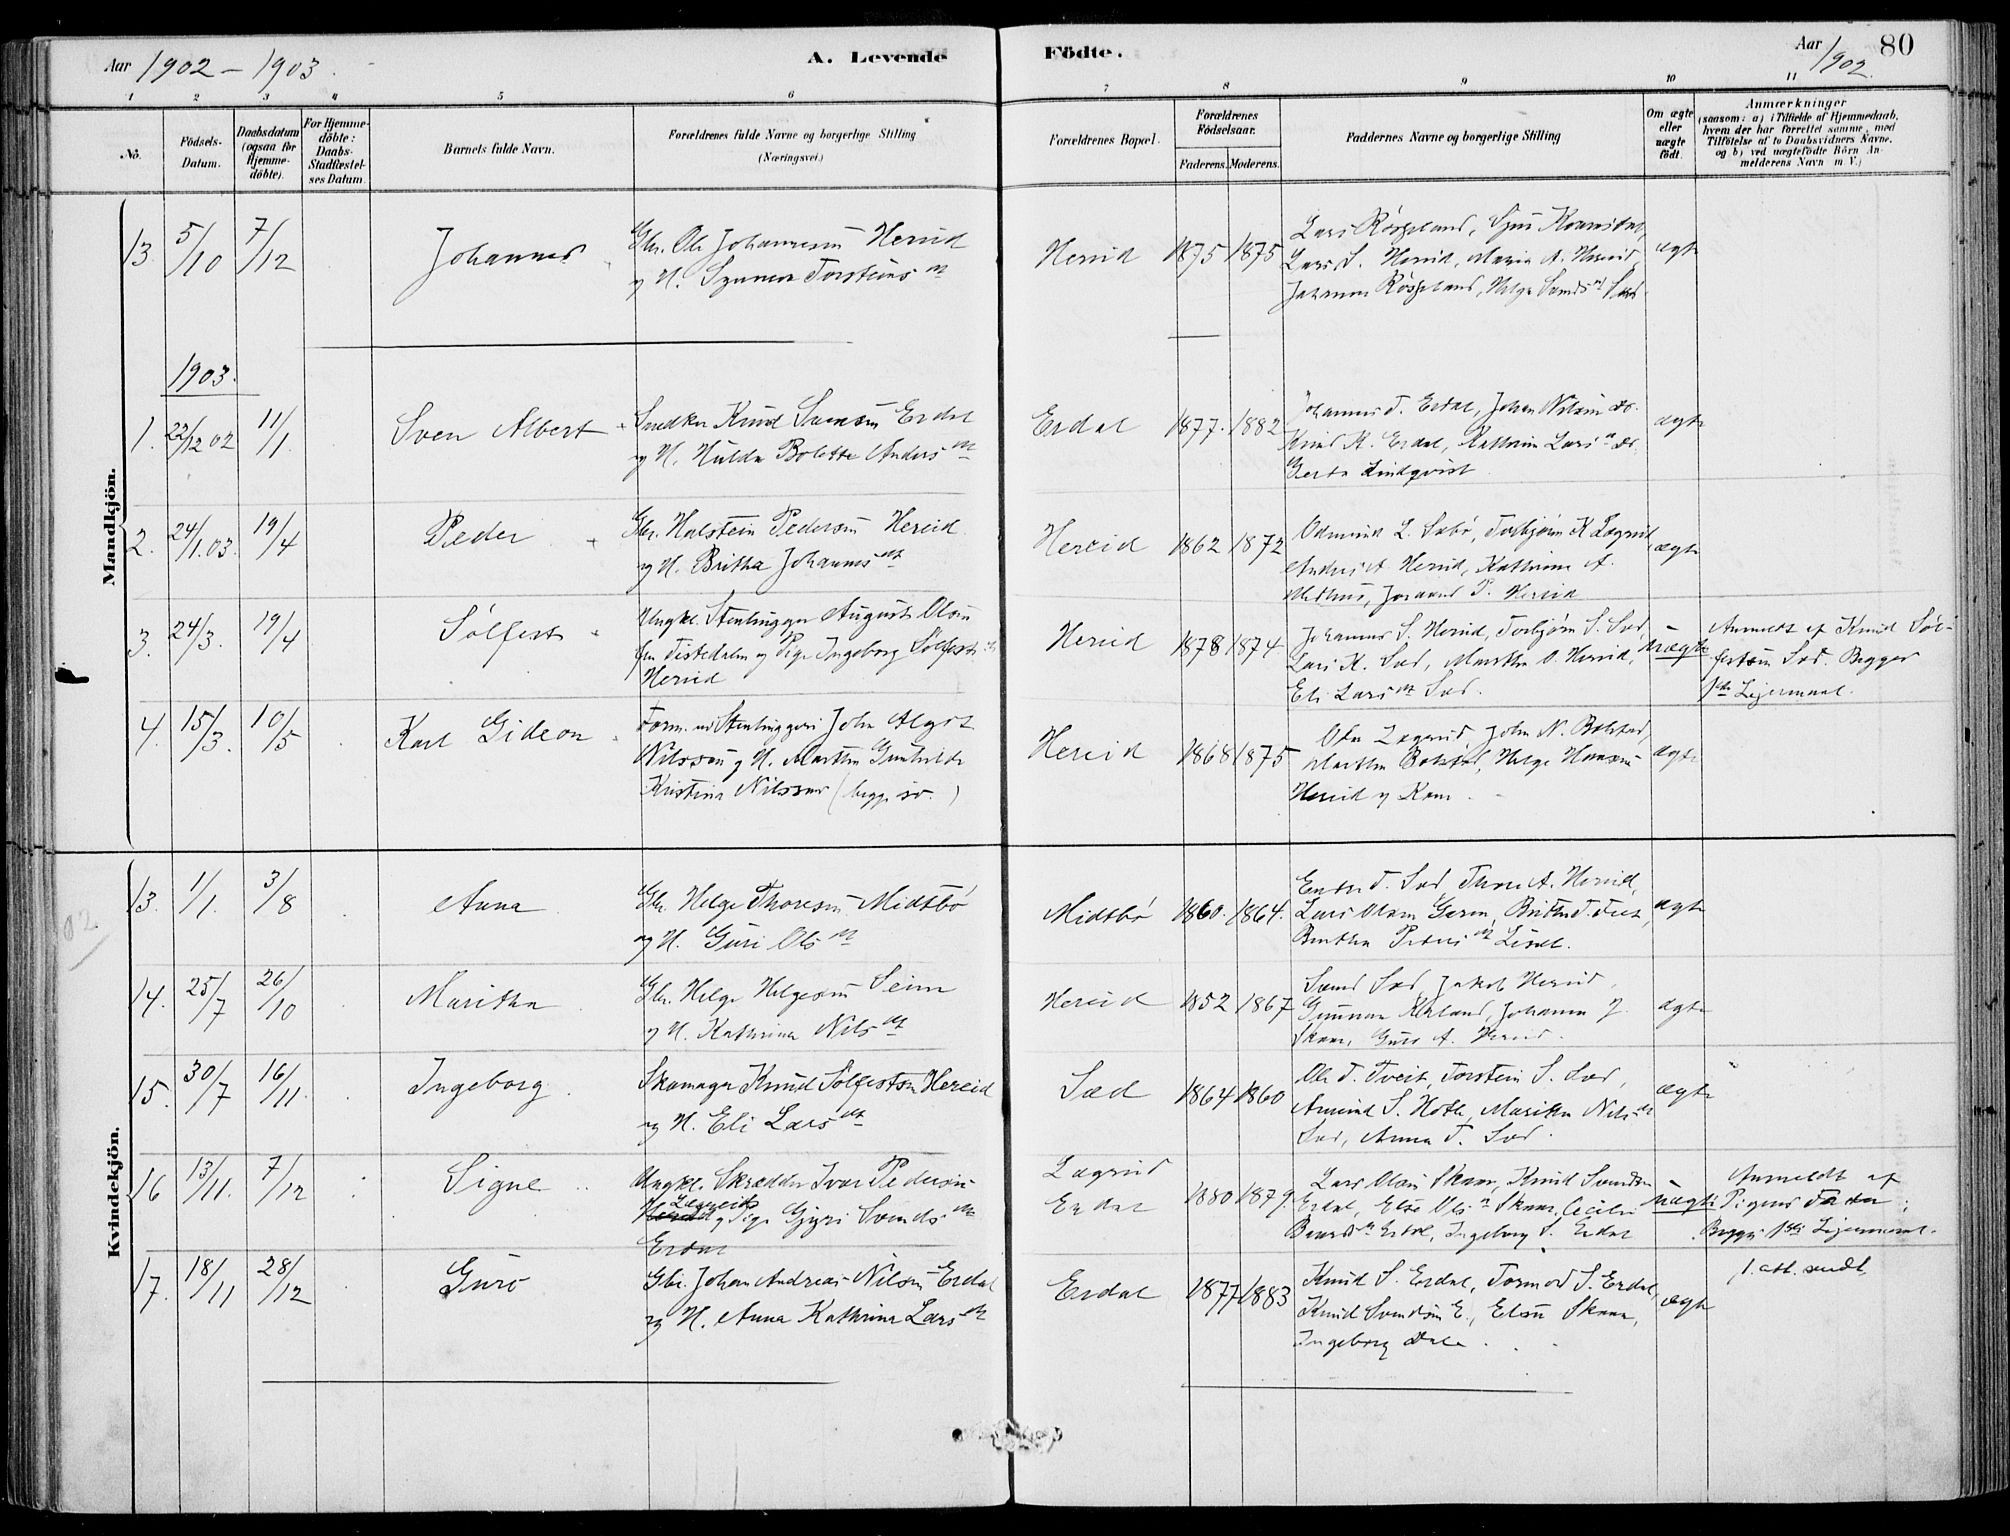 Aar 1902 - 1903.
A. Levende
Födte.
Aar 1902.
80
1 2 3 4 5 6 7 8 9 10 11
No.
Födsels-
Datum.
Daabsdatum
(ogsaa for
Hjemme-
döbte).
For Hjemme-
döbte:
Daabs-
Stadfæstel-
ses Datum.
Barnets fulde Navn.
Forældrenes fulde Navne og borgerlige Stilling
(Næringsvei.)
Forældrenes Bopæl.
Forældrenes
Födselsaar.
Faderens. Moderens.
Faddernes Navne og borgerlige Stilling
Om ægte
eller
uægte
födt.
Anmærkninger
(saasom: a) i Tilfælde af Hjemmedaab,
hvem der har forrettet samme, med
Tilföielse af to Daabsvidners Navne,
og b) ved uægtefödte Börn An-
melderens Navn m. V.)
Mandkjön.
13 5/10 7/12 Johannes
Gbr. Ole Johannessøn Hereid
og H. Synneva Torsteinsdt
Hereid 1875 1875
Lars S. Hereid, Maria A. Hereid,
ægte
1903.
1. 22/12 02 11/1 Sven Albert
Snedker Knud Svensøn Erdal
og H. Hulda Bolette Andersdt
Erdal 1877. 1882
Johannes T. Erdal, Johan Nilsøn do.
Knud K. Erdal, Kathrina Larsdt do.
Gerda Lindqvist
ægte
2. 24/1.03. 19/4 Peder
Gbr. Halstein Pedersøn Hereid
og H. Britha Johannesdt
Hereid 1862 1872
Odmund L. Sæbø, Torbjørn K Lægreid
Anders A. Hereid, Kathrina A.
P. Hereid
ægte
3. 24/3. 19/4 Sølfest
Ungkl. Stenhugger August Olsøn
fra Tistedalen og Pige Ingeborg Sølfestdt
Hereid
Hereid 1878 1874
Johannes S. Hereid, Torbjørn S. Sæd,
Lars K. Sæd, Martha O. Hereid,
Eli Larsdt Sæd.
uægte
Anmeldt af Knud Søl-
festsøn Sæd. Begges
1ste Lejermaal.
4. 15/3. 10/5 Karl Gideon
Stenhugger John Algot
Nilsson og H. Martha Gunhilda
Kristina Nilsson (begge sv.)
Hereid 1868 1875
Ola Lægreid, John N. Bolstad,
Martha Bolstad, Helge Hansøn
Hereid og Kone.
ægte
Kvindekjön.
02
13. 1/1. 3/8 Anna
Gbr. Helge Thoresøn Midtbø
og H. Guri Olsdt
Midtbø 1860. 1864.
Endre T. Sæd, Thore A. Hereid,
Lars Olsøn Garen, Britha T.
Britha Pedersdt
ægte
14. 25/7 26/10 Maritha
Gbr. Helge Helgesøn Seim
og H. Kathrina Nilsdt
Hereid 1852 1867
Svend Sæd, Jakob Hereid,
Gunnar, Johanna J.
Skaar, Guro A. Hereid.
ægte
15. 30/7 16/11. Ingeborg
Skomager Knud Sølfestsøn Hereid
og H. Eli Larsdt
Sæd 1864 1860
Ole T. Tveit, Torstein S. Sæd,
Amund S. Hotle, Maritha Nilsdt
Sæd, Anna T. Sæd.
ægte
16 13/11. 7/12 Signe
Ungkl. Skrædder Ivar Pedersøn
Lægreid
Hereid og Pige Gjøri Svendsdt
Erdal
Lægreid
Erdal
1880 1879.
Lars Olsøn Skaar, Knud Svendsøn
Erdal, Else Olsdt Skaar, Cecilie
Erdal, Ingeborg S. Erdal
uægte
Anmeldt af
Pigens Fader.
Begges 1ste Lejermaal.
17. 18/11 28/12 Guro
Gbr. Johan Andreas Nilsøn Erdal
og H. Anna Kathrina Larsdt
Erdal 1877 1883
Knud S. Erdal, Tormod S. Erdal,
Knud Svendsøn E., Skaar,
Ingeborg
ægte
1. att. sendt